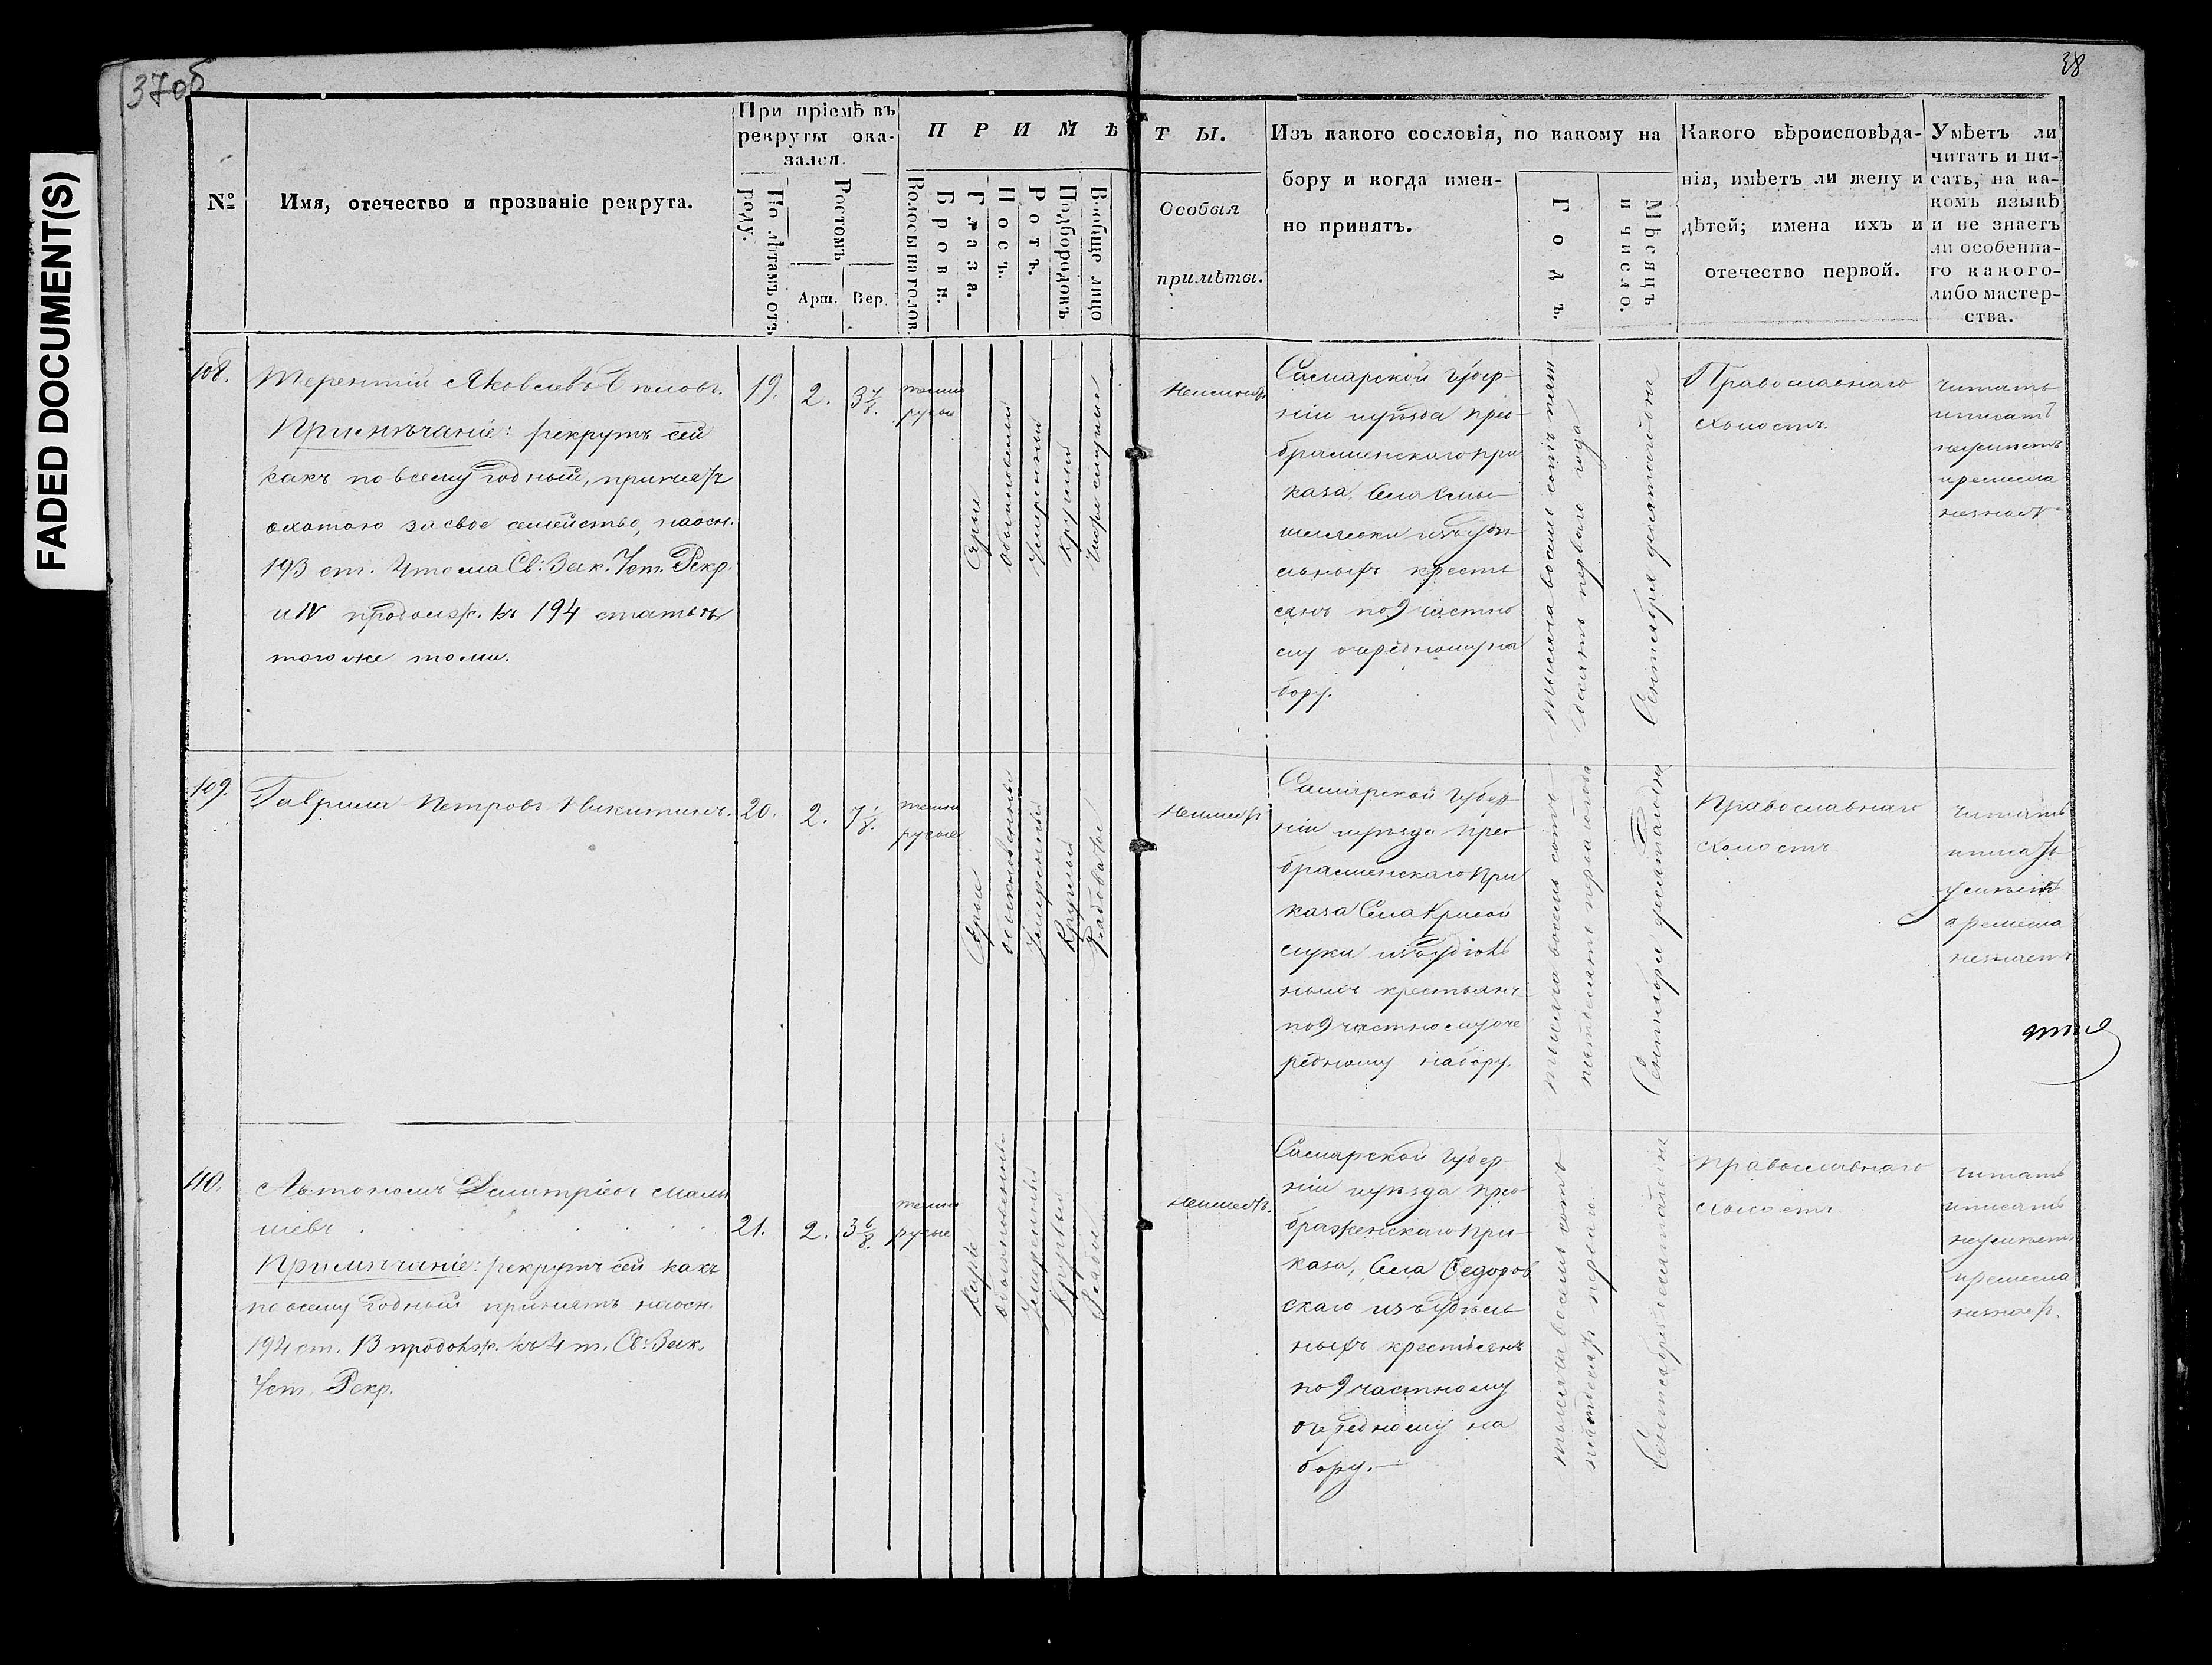 FADED DOCUMENT(S)
37об
38
№
Имя, отечество и прозваніе рекрута.
При пріемѣ въ
рекруты ока-
зался.
По лѣтамъ отъ
роду.
Ростомъ
Арш.
Вер.
ПРИМѢТЫ.
Волосы на голов.
Брови.
Глаза.
Носъ.
Ротъ.
Подбородокъ
Вообще лицо
Особыя
примѣты.
Изъ какого сословія, по какому на
бору и когда имен-
но принятъ.
Годъ.
Мѣсяцъ
и число.
Какого вѣроисповѣда-
нія, имѣетъ ли жену и
дѣтей; имена ихъ и
отечество первой.
Умѣетъ ли
читать и пи-
сать, на ка-
комъ языкѣ
и не знаетъ
ли особенна-
го какого-
либо мастер-
ства.
108.
Терентій Яковлевъ
Примѣчаніе: рекрутъ сей
какъ по всему годный, принятъ
охотою за свое семейство, на осн.
193 ст. 4 тома Св: Зак. Уст. Рекр.
и IV продолж. къ 194 статьѣ
того же тома.
19.
2.
3 7/8.
темно
русые
Серые
Обыкновенный
Умеренный
Круглый
Чистое смуглое
Неимеетъ
Самарской Губер-
ніи и уѣзда Прео-
браженскаго при
каза Села
изъ удѣ
льныхъ кресть
янъ по 9 частно
му очередному на
бору.
тысяча восемь сотъ пять
десятъ перваго года
Сентября десятаго дня
Православнаго
холостъ.
читать
и писать
неумѣетъ
и ремесла
незнаетъ
109.
Гаврила Петровъ Никитинъ.
20.
2.
7 1/8.
темно
русые
Серые
обыкновенный
Умеренный
Круглый
Рябоватое
Неимеетъ
Самарской Губер-
ніи и уѣзда Прео-
браженскаго При
каза Села Кривой
луки изъ удѣль
ныхъ крестьянъ
по 9 частному оче
редному набору.
тысяча восемь сотъ
пятдесятъ перваго года
Сентября десятаго дня
Православнаго
холостъ
читать
и писать
умѣетъ
а ремесла
незнаетъ
110.
Автономъ Дмитріевъ Малы
шевъ
Примѣчаніе: рекрутъ сей какъ
по всему годный принятъ на осн.
194 ст. 13 продолж. къ 4 т. Св: Зак.
Уст. Рекр.
21.
2.
3 6/8.
темно
русые
Каріе
обыкновенный
Умеренный
Круглый
Рябое
неимеетъ.
Самарской Губер-
ніи и уѣзда Прео-
браженскаго При-
каза, Села Федоров
скаго изъ удѣль
ныхъ крестьянъ
по 9 частному
очередному на
бору.
тысяча восемь сотъ
пятдесятъ перваго
Сентября десятаго дня
Православнаго
холостъ.
читать
и писать
неумѣетъ
и ремесла
незнаетъ.